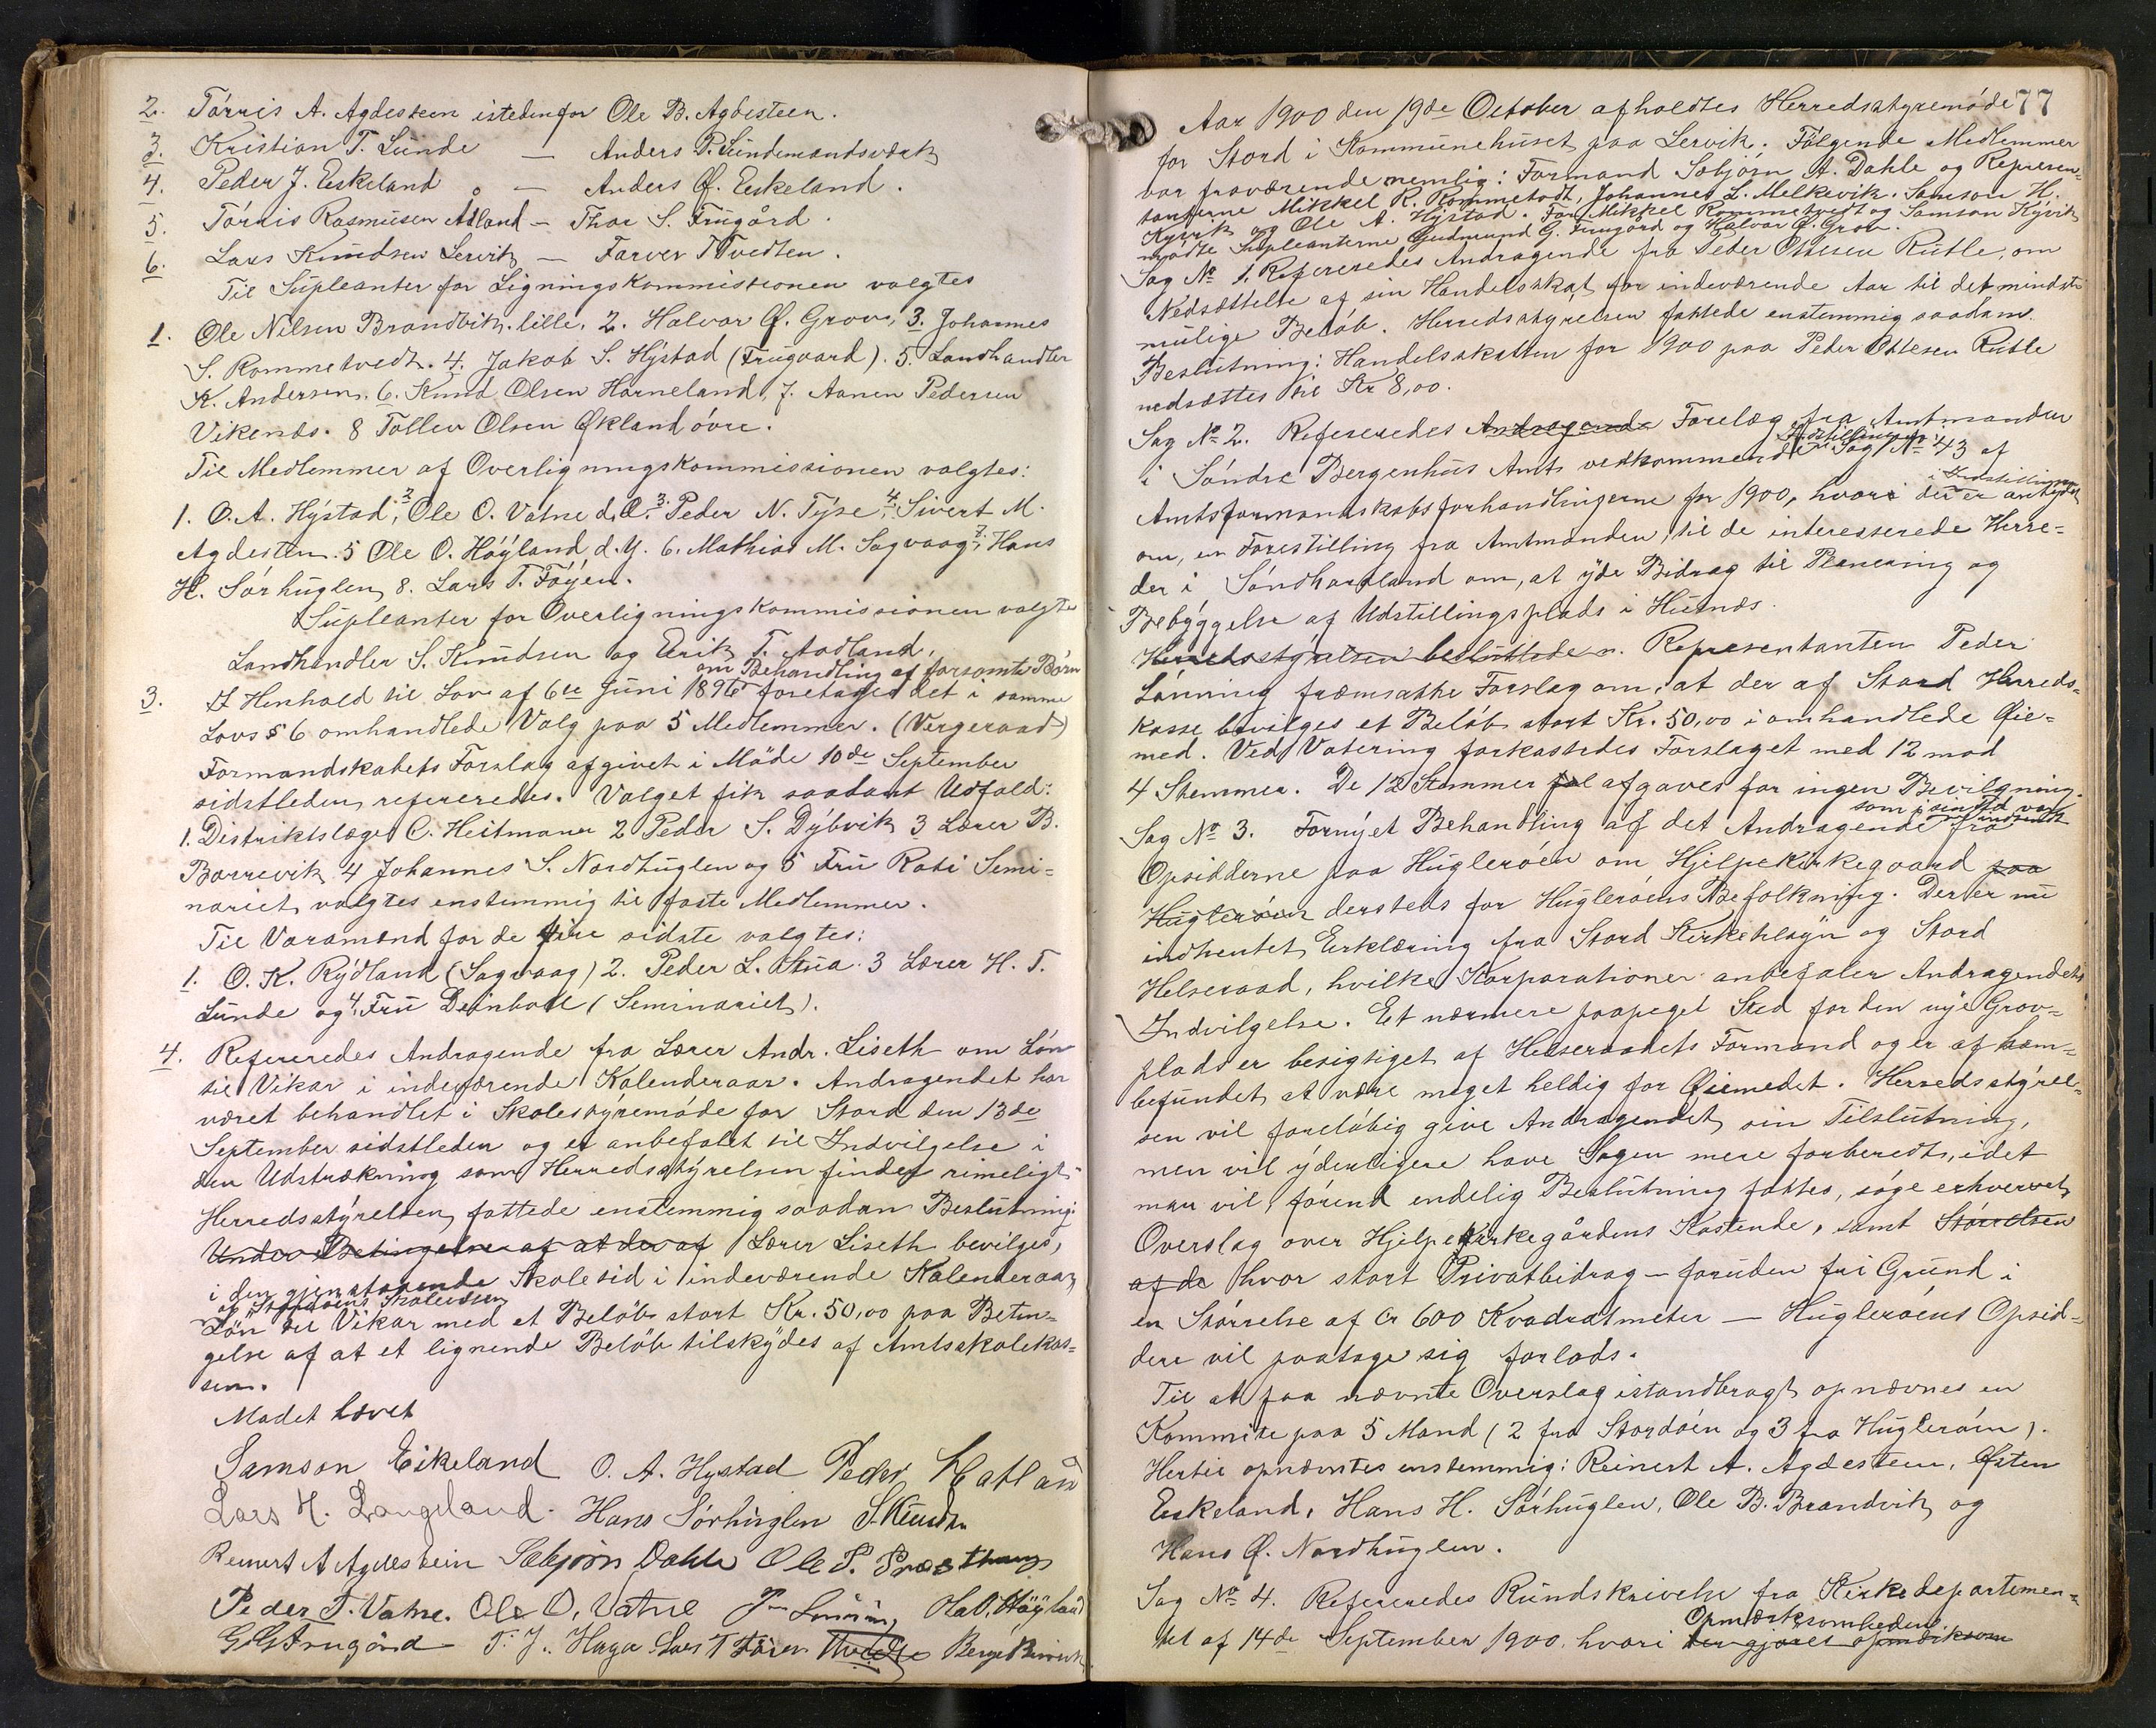 2. Tørris A. Agdesteen istedenfor Ole B. Agdesteen.
3. Kristian T. Lunde — Anders P. Lundemandsværk
4. Peder J. Eskeland — Anders Ø. Eskeland.
5. Tørris Rasmusen Adland — Thor S. Frugård.
6. Lars Knudsen Lervik — Farver T Tvedten.
Til Supleanter for Ligningskommissionen valgtes
1. Ole Nilsen Brandvik lille, 2. Halvor Ø. Grov, 3. Johannes
S. Rommetvedt. 4. Jakob S. Hystad (Frugaard). 5. Landhandler
K. Andersen. 6. Knud Olsen Horneland, 7. Aanen Pedersen
Vikenæs. 8 Tollev Olsen Økland øvre.
Til Medlemmer af Overligningskommissionen valgtes:
1. O. A. Hystad, 2 Ole O. Vatne d. Æ. 3. Peder N. Tyse 4. Sivert M.
Agdesten. 5 Ole O. Høyland d. y. 6. Mathias M. Sagvaag 7. Hans
H. Sørhuglen 8. Lars T. Føyen.
Supleanter for Overligningskommissionen valgtes
Landhandler S. Knudsen og Eirik T. Aadland.
om Behandling af forsømte Børn
3. I Henhold til Lov af 6te Juni 1896 foretages det i samme
Lovs § 6 omhandlede Valg paa 5 Medlemmer. (Vergeraad)
Formandskabets Forslag afgivet i Møde 10de September
sidstleden refereredes. Valget fik saadant Udfald:
1. Distriktslæge C. Heitmann 2 Peder S. Dybvik 3 Lærer B.
Børrevik 4 Johannes S. Nordhuglen og 5 Fru Rabi Semi=
nariet valgtes enstemmig til faste Medlemmer.
Til Varamænd for de fire sidste valgtes:
1. O. K. Rydland (Sagvaag) 2. Peder L. Stua 3 Lærer H. T.
Lunde og 4. Fru Deinboll (Seminariet).
4. Refereredes Andragende fra Lærer Andr. Liseth om Løn
til Vikar i indeværende Kalenderaar. Andragendet har
været behandlet i Skolestyremøde for Stord den 13de
September sidstleden og er anbefalet til Indvilgelse i
den Udstrækning som Herredsstyrelsen finder rimeligt.
Herredsstyrelsen fattede enstemmig saadan Beslutning:
Under Betingelse af at der af Lærer Liseth bevilges,
i den gjenstaaende Skoletid i indeværende Kalenderaar,
af Stordøens Skolekassen
Løn til Vikar med et Beløb stort Kr. 50,00 paa Betin=
gelse af at et lignende Beløb tilskydes af Amtsskolekas=
sen.
Mødet hævet
Samson Eikeland O. A. Hystad Peder Hatland
Lars H. Langeland. Hans Sørhuglen S. Knudsen
Reinert A Agdestein Sæbjørn Dahle Ole P. Præsthaug
Peder T. Vatne. Ole O. Vatne P. Lønning Ole O. Høyland
G. G. Frugård T. J. Haga Lars T Føien Børge Børrevik
77
Aar 1900 den 19de October afholdtes Herredsstyremøde
for Stord i Kommunehuset paa Lervik. Følgende Medlemmer
var fraværende nemlig: Formand Sæbjørn A. Dahle og Represen=
tanterne Mikkel R. Rommetvedt, Johannes L. Melkevik. Samson H.
Kyvik og Ole A. Hystad. For Mikkel Rommetvedt og Samson Kyvik
mødte Supleanterne Gudmund G. Frugård og Halvor Ø. Grov.
Sag No 1. Refereredes Andragende fra Peder Ottesen Rutle, om
Nedsættelse af sin Handelsskat for indeværende Aar til det mindst
mulige Beløb. Herredsstyrelsen fattede enstemmig saadan
Beslutning: Handelsskatten for 1900 paa Peder Ottesen Rutle
nedsættes til Kr 8,00.
Sag No 2. Refereredes Andragende Forelæg fra Amtmanden
i Søndre Bergenhus Amt vedkommende Indstilling til Sag No 43 af
Amtsformandskabsforhandlingerne for 1900, hvori der er i Indstillingen antydet
om, en Forestilling fra Amtmanden til de interesserede Herre=
der i Søndhordland om, at yde Bidrag til Planering og
Bebyggelse af Udstillingsplads i Husnæs.
Herredsstyrelsen besluttede n. Representanten Peder
Lønning fræmsatte Forslag om, at der af Stord Herreds=
kasse bevilges et Beløb stort Kr. 50,00 i omhandlede Øie=
med. Ved Votering forkastedes Forslaget med 12 mod
4 Stemmer. De 12 Stemmer fal afgaves for ingen Bevilgning.
Sag No 3. Fornyet Behandling af det Andragende som i sin Tid var indsendt fra
Opsidderne paa Huglerøen om Hjelpekirkegaard paa
Huglerøen dersteds for Huglerøens Befolkning. Der er nu
indhentet Erklæring fra Stord Kirketilsyn og Stord
Helseraad, hvilke Korporationer anbefaler Andragendets
Indvilgelse. Et nærmere paapeget Sted for den nye Grav=
plads er besigtiget af Helseraadets Formand og er af ham
befundet at være meget heldig for Øiemedet. Herredsstyrel=
sen vil foreløbig give Andragendet sin Tilslutning,
men vil yderligere have Sagen mere forberedt, idet
man vil, førend endelig Beslutning fattes, søge erhvervet
Overslag over Hjelpekirkegårdens Kostende, samt Størrelsen
af de hvor stort Privatbidrag — foruden fri Grund i
en Størrelse af Cr 600 Kvadratmeter — Huglerøens Opsid=
dere vil paatage sig forlods.
Til at faa nævnte Overslag istandbragt opnævnes en
Kommite paa 5 Mand (2 fra Stordøen og 3 fra Huglerøen).
Hertil opnævntes enstemmig: Reinert A. Agdesteen, Østen
Eskeland, Hans H. Sørhuglen, Ole B. Brandvik og
Hans Ø. Nordhuglen.
Sag No 4. Refereredes Rundskrivelse fra Kirkedepartemen=
tet af 14de September 1900, hvori Opmærksomheden der gjøres opmærksom